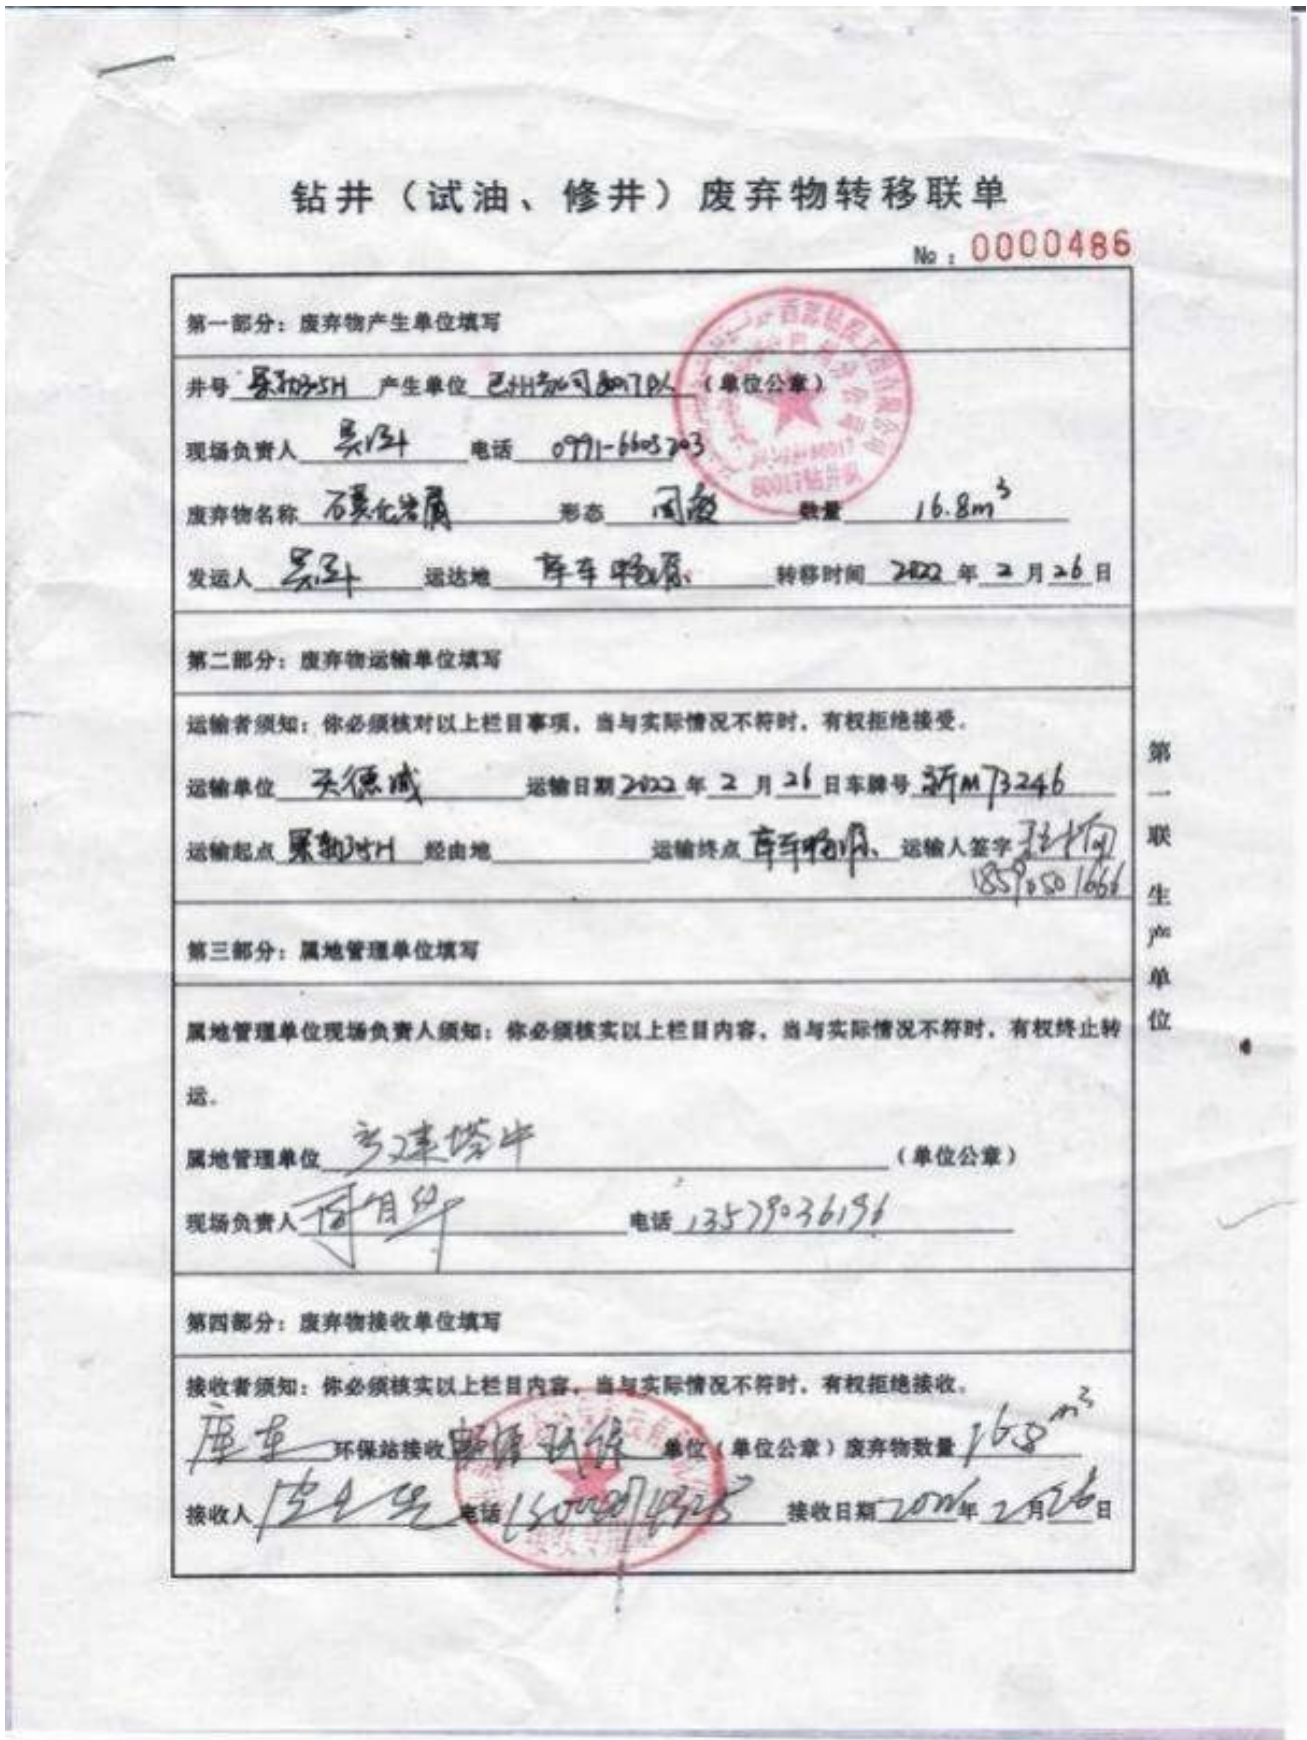 钻井（试油、修井）废弃物转移联单
No：0000486
第一部分：废弃物产生单位填写
井号 果勒3-5H 产生单位 巴州分公司80017队（单位公章）
现场负责人 电话 0991-6605203
废弃物名称 磺化岩屑 形态 固液 数量 16.8m³
发运人 运达地 库车畅源 转移时间 2022 年 2 月 26 日
第二部分：废弃物运输单位填写
运输者须知：你必须核对以上栏目事项，当与实际情况不符时，有权拒绝接受。
运输单位 天德诚 运输日期 2022 年 2 月 26 日车牌号 新M73246
运输起点 经由地 运输终点 库车畅源 运输人签字
第三部分：属地管理单位填写
属地管理单位现场负责人须知：你必须核实以上栏目内容，当与实际情况不符时，有权终止转
运。
属地管理单位 （单位公章）
现场负责人 电话 13579036196
第四部分：废弃物接收单位填写
接收者须知：你必须核实以上栏目内容，当与实际情况不符时，有权拒绝接收。
库车 环保站接收 畅源环保 单位（单位公章）废弃物数量 16.8m³
接收人 电话 接收日期 年 2 月 26 日
第一联 生产单位